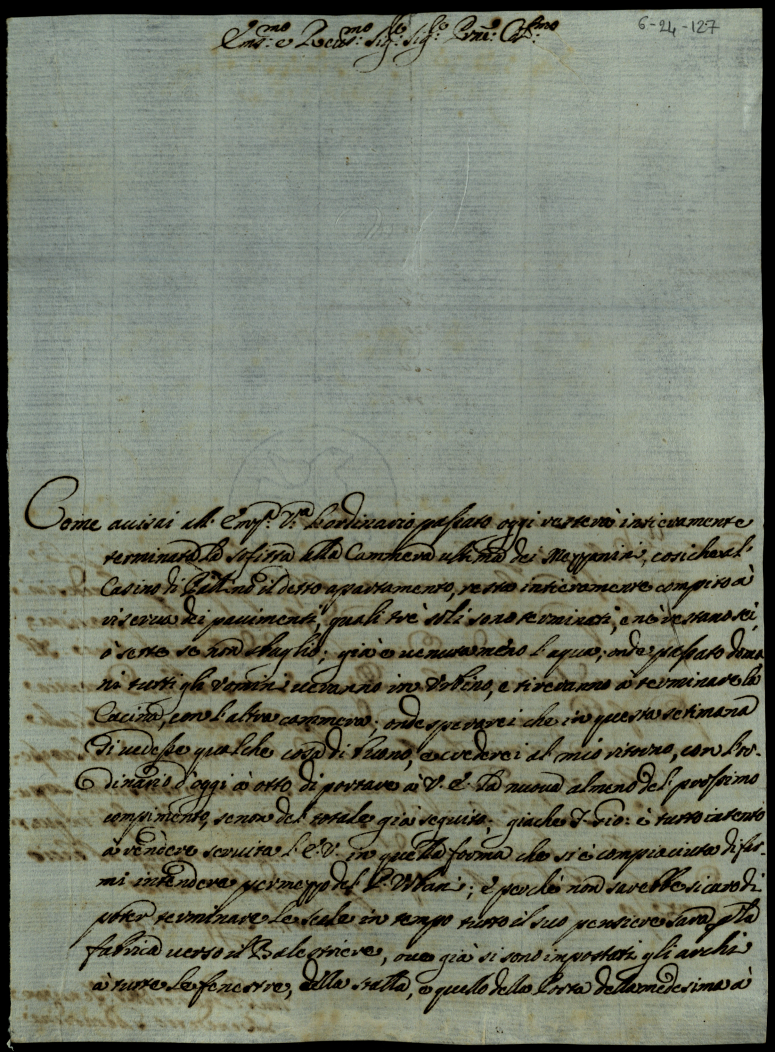 6-24-127
Em.mo e Rev.mo Sig.re Sig.re Prne Col.mo
Come avisai all' Emz.a V.ra l'ordinario passato oggi resterà intieramente
terminata la soffitta alla Cammera ultima dei Mezzanini, cosiche al
Casino di il detto apartamento, resta intieramente compito à
riserva dei pavimenti, quali trè soli sono terminati, e ne restano sei,
ò sette se non sbaglio; già è venuta meno l'aqua; onde passato doma
ni tutti gli uomini veranno in Urbino, e tireranno à terminare la
Cucina, con l'altra cammera; onde sperarei che in questa setimana
si vedesse qualche cosa di buono, e crederei al mio ritorno, con l'or-
dinario d'oggi à otto di portare à V. E. la nuova almeno del prossimo
compimento, se non del totale già seguito; giache è tutto intento
à rendere servita l'E. V. in quella forma che si è compiaciuta di far-
mi intendere per mezzo del S.r Urbani; e perchè non sarebbe sicuro di
poter terminare le scale in tempo tutto il suo pensiere sarà p la
fabrica verso il Balestriere, ove già si sono impostati gli archi
à tutte le fenestre, della stalla, e quello della Porta della medesima à